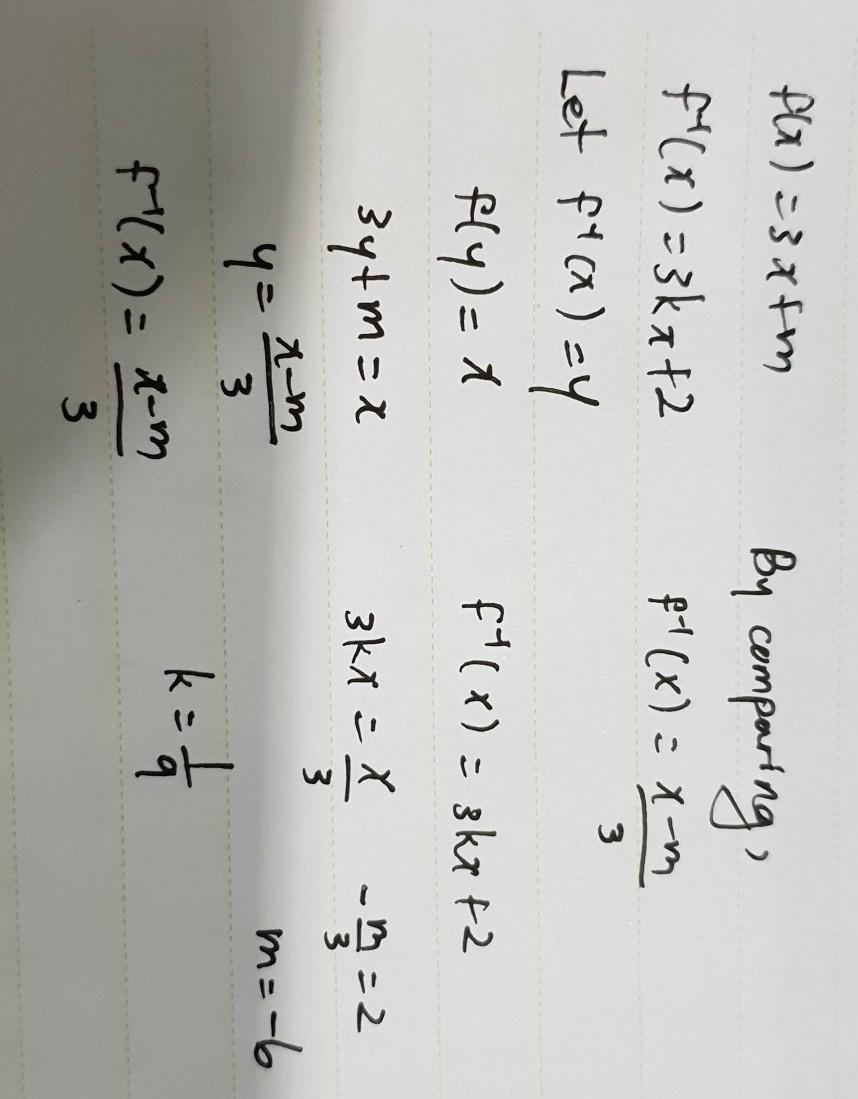 f(x) = 3x+m
f⁻¹(x) = 3kx+2
Let f⁻¹(x) = y
f(y) = x
3y+m = x
y = x-m/3
f⁻¹(x) = x-m/3
By comparing,
f⁻¹(x) = x-m/3
f⁻¹(x) = 3kx+2
3kx = x/3   -m/3 = 2
k = 1/9   m = -6